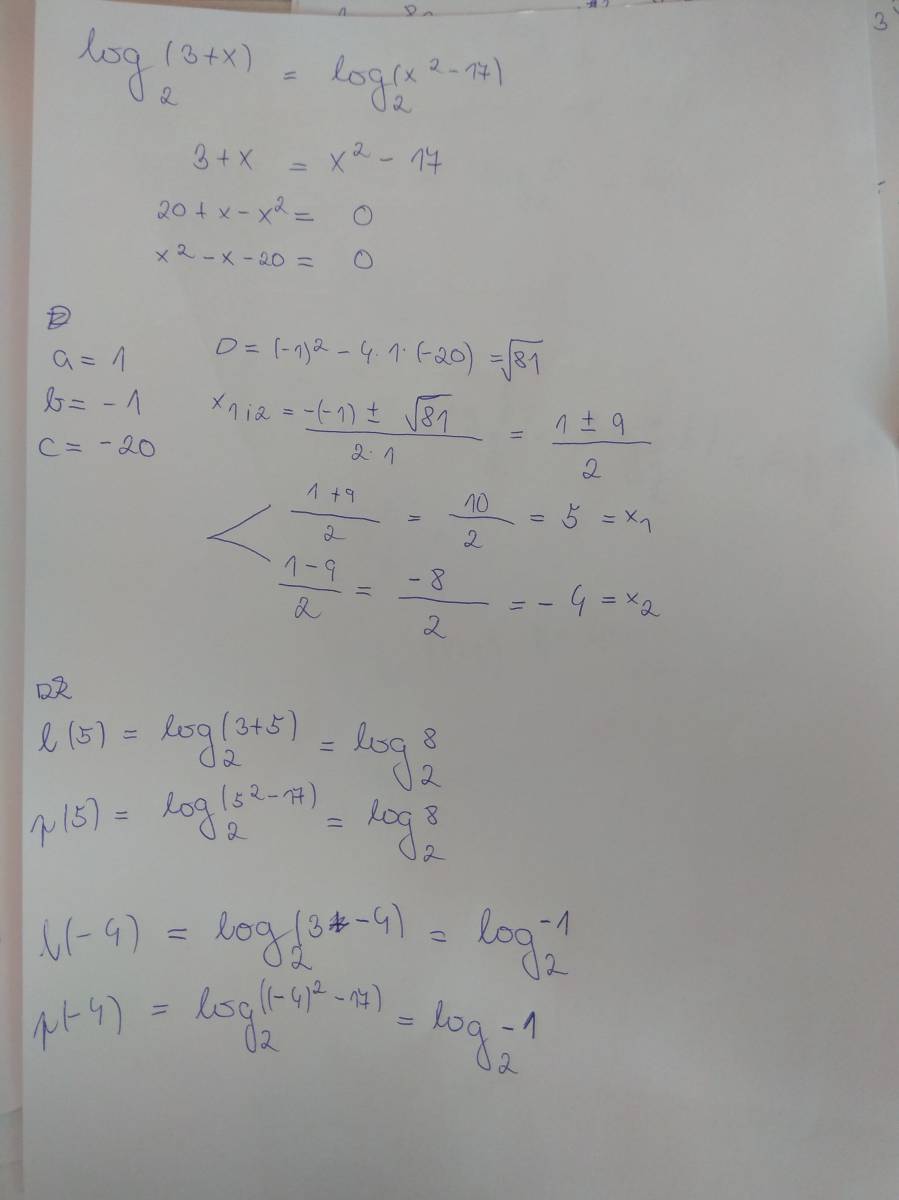 log₂(3+x) = log₂(x²-17)
3+x = x² - 17
20+x-x² = 0
x²-x-20 = 0
a = 1
D = (-1)² - 4·1·(-20) = √81
b = -1
x₁ᵢ₂ = -(-1) ± √81 / 2·1 = 1 ± 9 / 2
c = -20
1+9 / 2 = 10 / 2 = 5 = x₁
1-9 / 2 = -8 / 2 = -4 = x₂
l(5) = log₂(3+5) = log₂ 8
p(5) = log₂(5²-17) = log₂ 8
l(-4) = log₂(3-4) = log₂ -1
p(-4) = log₂((-4)²-17) = log₂ -1
3